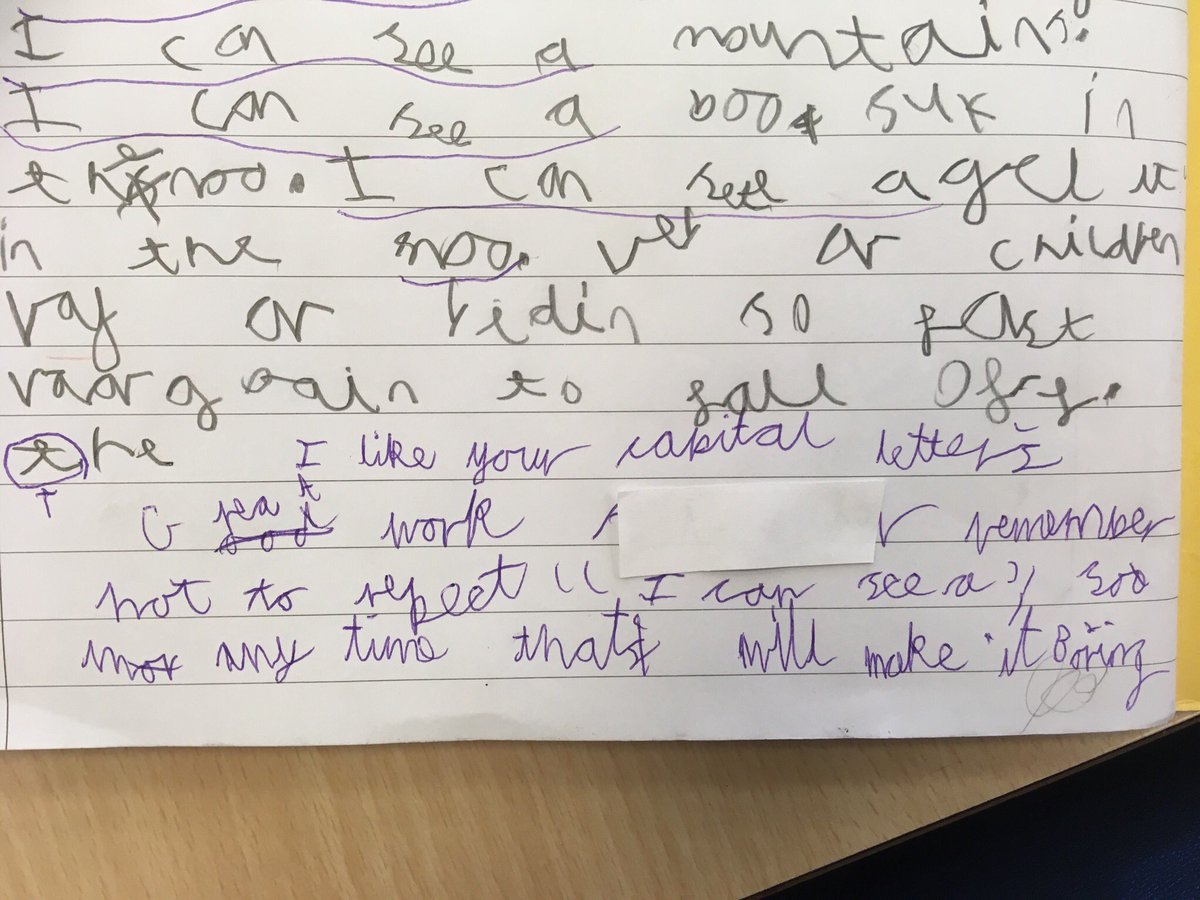 I can see a mountains.
I can see a boo suk in
the noo. I can see a gel it
in the moo. ver or children
vay or ridin so fast
vaor goain to fall Off.
the I like your capital letters
T Great work remember
not to repeat "I can see a" soo
many time that's will make it Boring